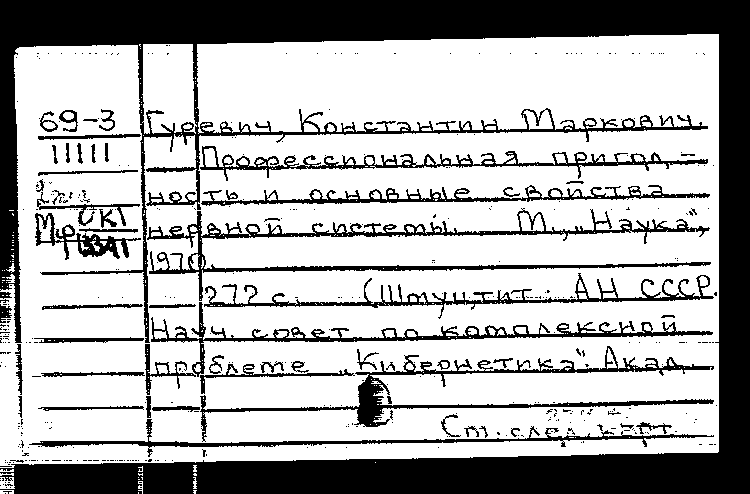 69-3
11111
Гуревич, Константин Маркович.
Профессиональная пригод-
ность и основные свойства
нервной системы. М., „Наука",
1970.
272 с. (Шмуцтит: АН СССР.
Науч. совет по комплексной
проблеме „Кибернетика". Акад.
См. след. карт.